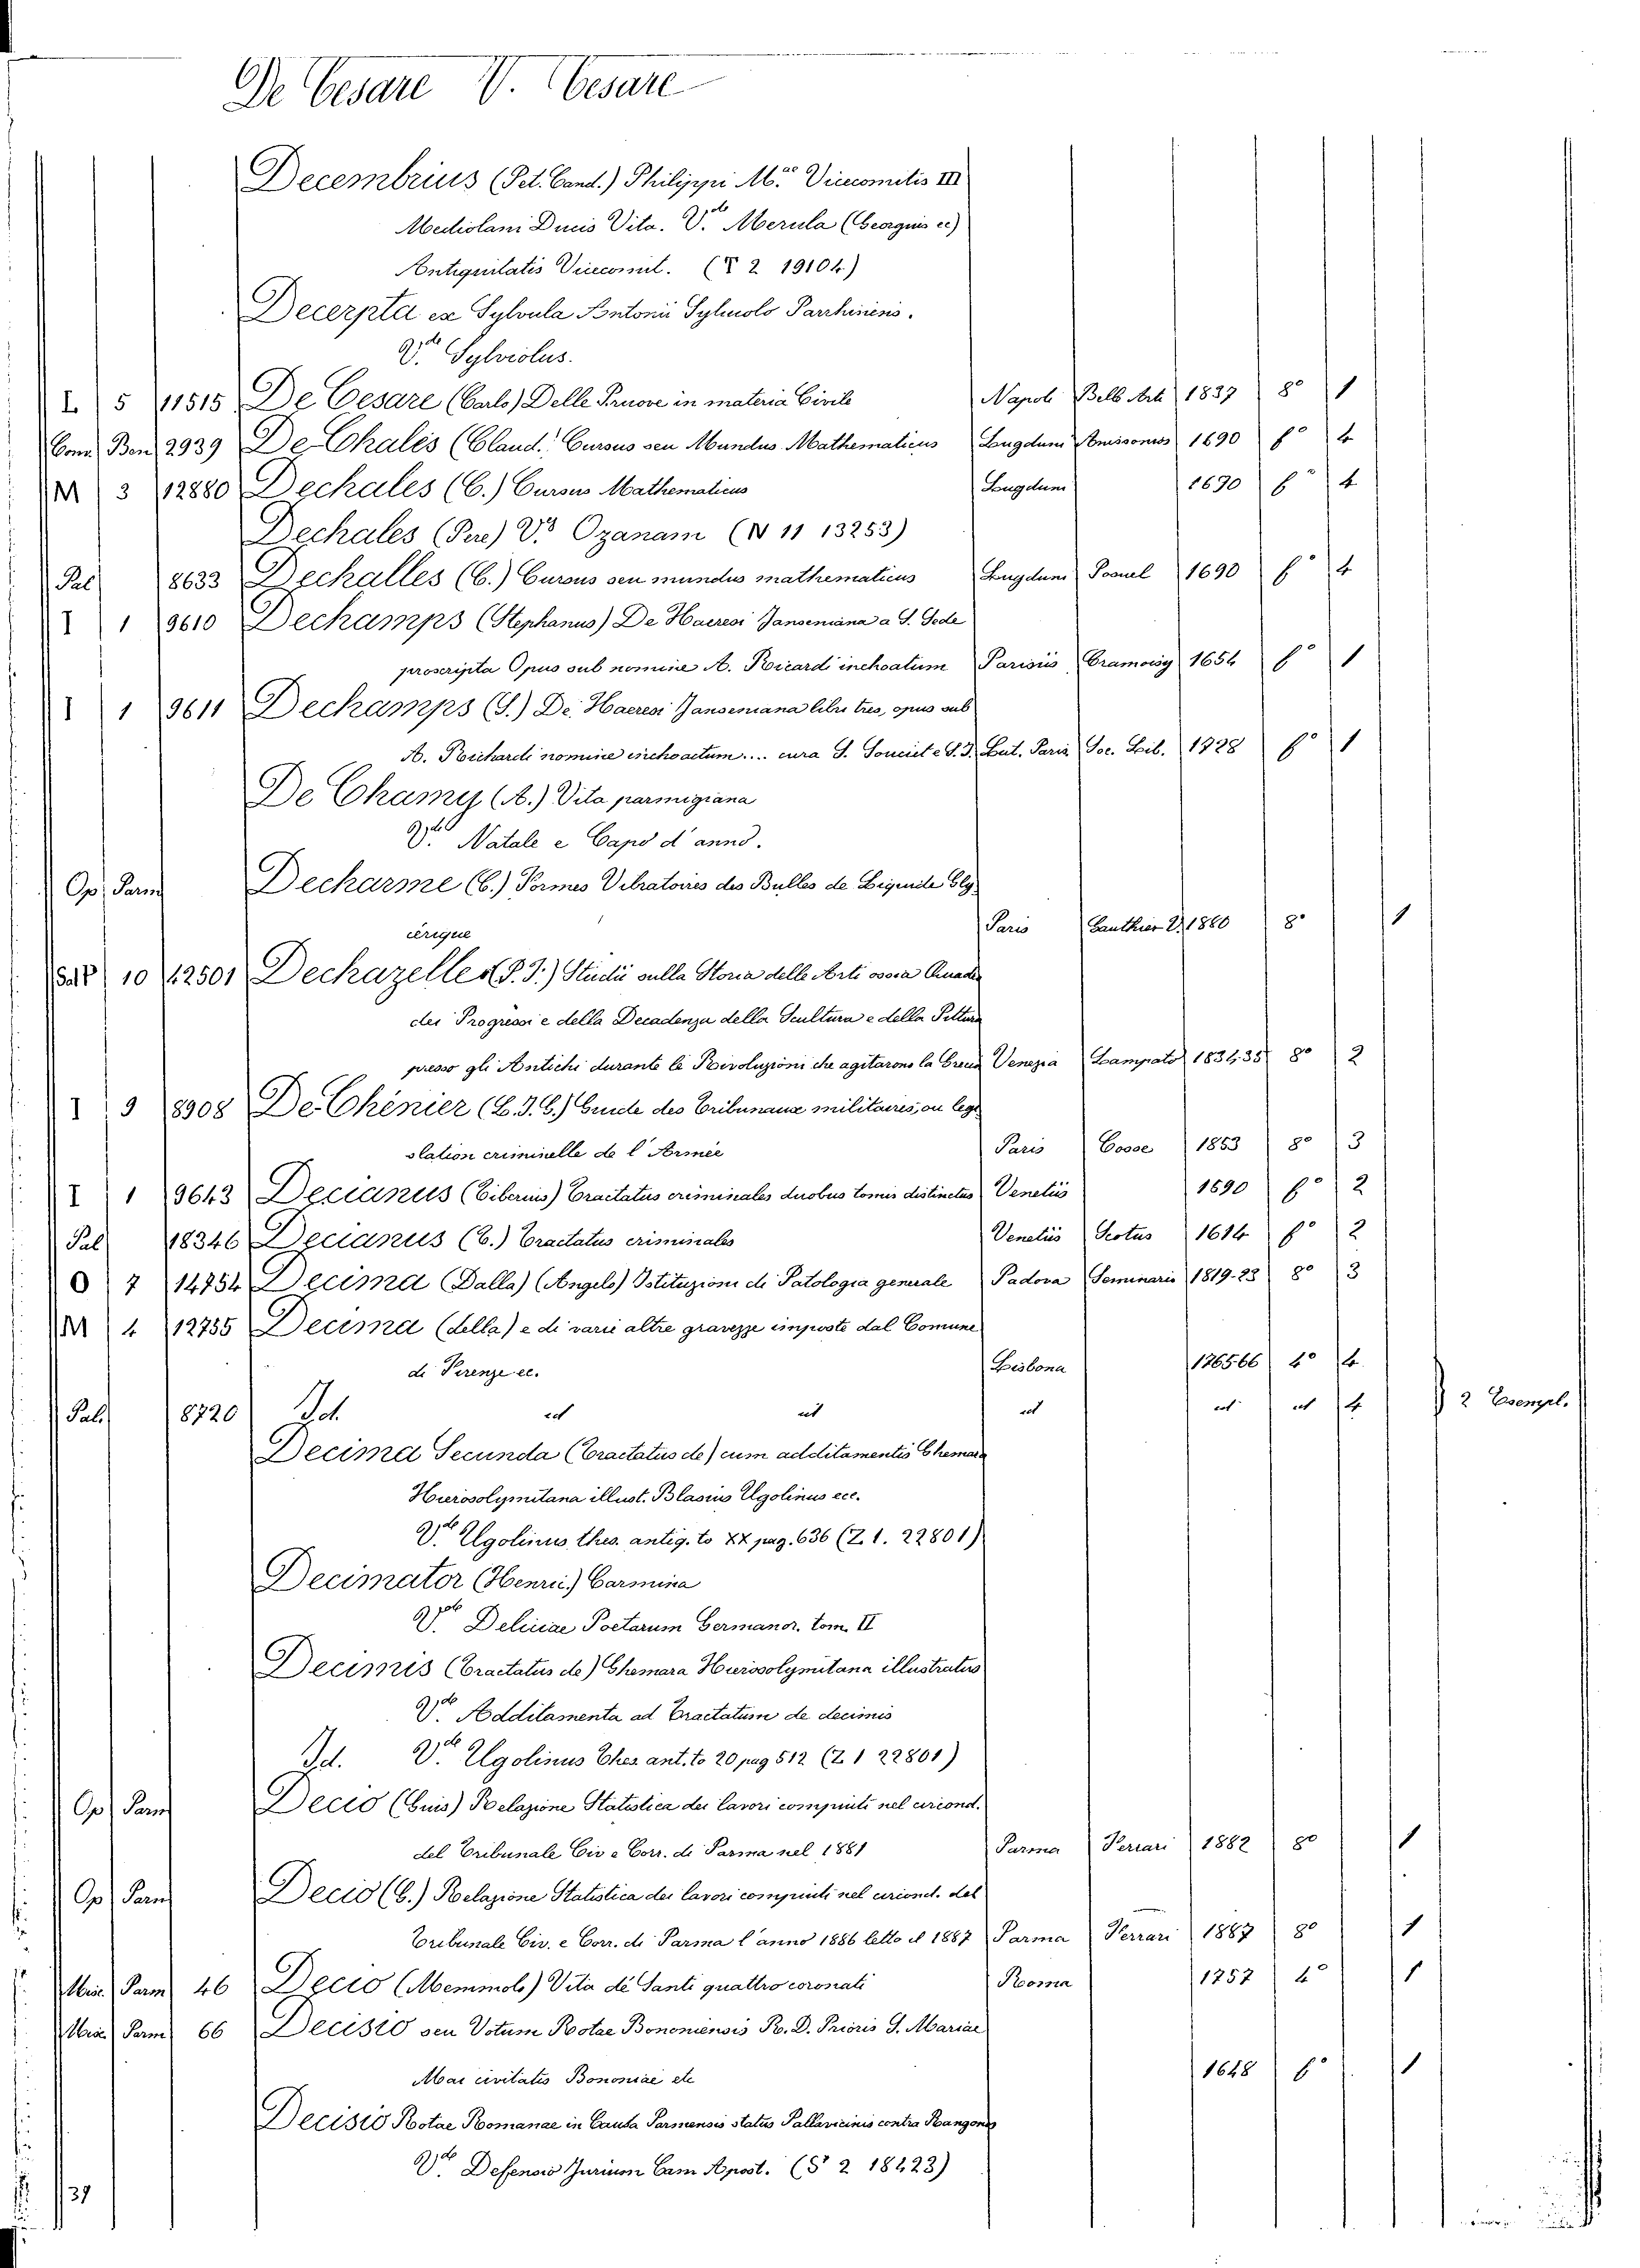 De Cesare V. Cesare
Decembrius (Pet. Cand.) Philippi M.ae Vicecomitis III
Mediolani Ducis Vita. V.de Merula (Georgius ec)
Antiquitatis Vicecomit. ( 2 19104)
Decerpta ex Sylvula Antonii
V.de Sylviolus.
L 5 11515 De Cesare (Carlo) Delle Pruove in materia Civile Napoli Bell Arti 1837 8° 1
Conv. Ben 2939 De Chalès (Claud.) Cursus seu Mundus Mathematicus Lugdum Anissonios 1690 f° 4
M 3 12880 Dechales (C.) Cursus Mathematicus Lugdum 1690 f° 4
Dechales (Pere) V.de Ozanam (N 11 13253)
Pal 8633 Dechalles (C.) Cursus seu mundus mathematicus Lugdum Posuel 1690 f° 4
I 1 9610 Dechamps (Stephanus) De Haeresi Janseniana a S. Sede
proscripta Opus sub nomine A. Ricard inchoatum Parisiis Cramoisy 1654 f° 1
I 1 9611 Dechamps (S.) De Haeresi Janseniana libri tres, opus sub
A. Richardi nomine inchoatum.... cura S. Souciet e S. J. Lut. Paris Soc. Lib. 1728 f° 1
De Chamy (A.) Vita parmigiana
V.de Natale e Capo d'anno.
Op. Parm Decharme (C.) Formes Vibratoires des Bulles de Liquide Gly
cérique Paris Gauthier V. 1880 8° 1
Sal P 10 12501 Dechazelles (P. J.) Studii sulla Storia delle Arti ossia Quadro
dei Progressi e della Decadenza della Scultura e della Pittura
presso gli Antichi durante le Rivoluzioni che agitarono la Grecia Venezia Lampato 1834.35 8° 2
I 9 8908 De Chénier (L. J. G.) Guide des Tribunaux militaires, ou legi
slation criminelle de l'Armée Paris Cosse 1853 8° 3
I 1 9643 Decianus (Tiberius) Tractatus criminales duobus tomis distinctus Venetiis 1590 f° 2
Pal 18346 Decianus (T.) Tractatus criminales Venetiis Scotus 1614 f° 2
O 7 14754 Decima (Dalla) (Angelo) Istituzioni di Patologia generale Padova Seminario 1819-23 8° 3
M 4 12755 Decima (della) e di varie altre gravezze imposte dal Comune
di Firenze ec. Lisbona 1765 66 4° 4
Pal. 8720 Id. id id id id id 4 2 Esempl.
Decima Secunda (Tractatus de) cum additamentis Ghemara
Hierosolymitana illust. Blasius Ugolinus ecc.
V.de Ugolinus thes. antiq. to XX pag. 636 (Z 1. 22801)
Decimator (Henrii) Carmina
V.de Deliciae Poetarum Germanor. tom. II
Decimis (Tractatus de) Ghemara Hierosolymitana illustratus
V.de Additamenta ad Tractatum de decimis
Id. V.de Ugolinus Thes. ant. to 20 pag 512 (Z 1 22801)
Op Parm Decio (Guis) Relazione Statistica dei lavori compiuti nel circond.
del Tribunale Civ e Corr. di Parma nel 1881 Parma Ferrari 1882 8° 1
Op Parm Decio (G.) Relazione Statistica dei lavori compiuti nel circond. del
Tribunale Civ. e Corr. di Parma l'anno 1886 letto il 1887 Parma Ferrari 1887 8° 1
Misc. Parm 46 Decio (Memmolo) Vita de Santi quattro coronati Roma 1757 4° 1
Misc. Parm 66 Decisio seu Votum Rotae Bononiensis R. D. Prioris S. Mariae
Mai civitatis Bononiae etc 1648 f° 1
Decisio Rotae Romanae in Causa Parmensis status Pallavicinis contra Rangones
V.de Defensio Jurium Cam Apost. (S 2 18423)
37